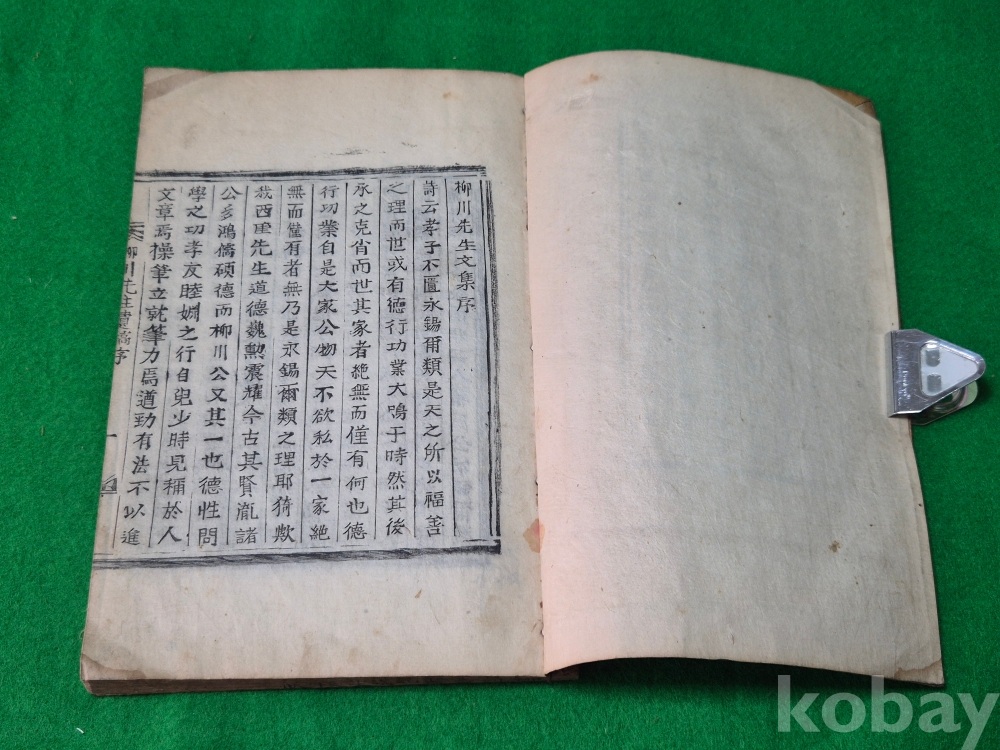 柳川先生文集序
詩云孝子不匱永錫爾類是天之所以福善
之理而世或有德行功業大鳴于時然其後
承之克肖而世其家者絶無而僅有何也德
行功業自是大家公物天不欲私於一家絶
無而僅有者無乃是永錫爾類之理耶猗歟
我西厓先生道德巍勲震耀今古其賢胤諸
公多鴻儒碩德而柳川公又其一也德性問
學之功孝友睦婣之行自兒少時見稱於人
文章焉操筆立就筆力焉遒勁有法不以進
柳川先生遺稿序
一
kobay